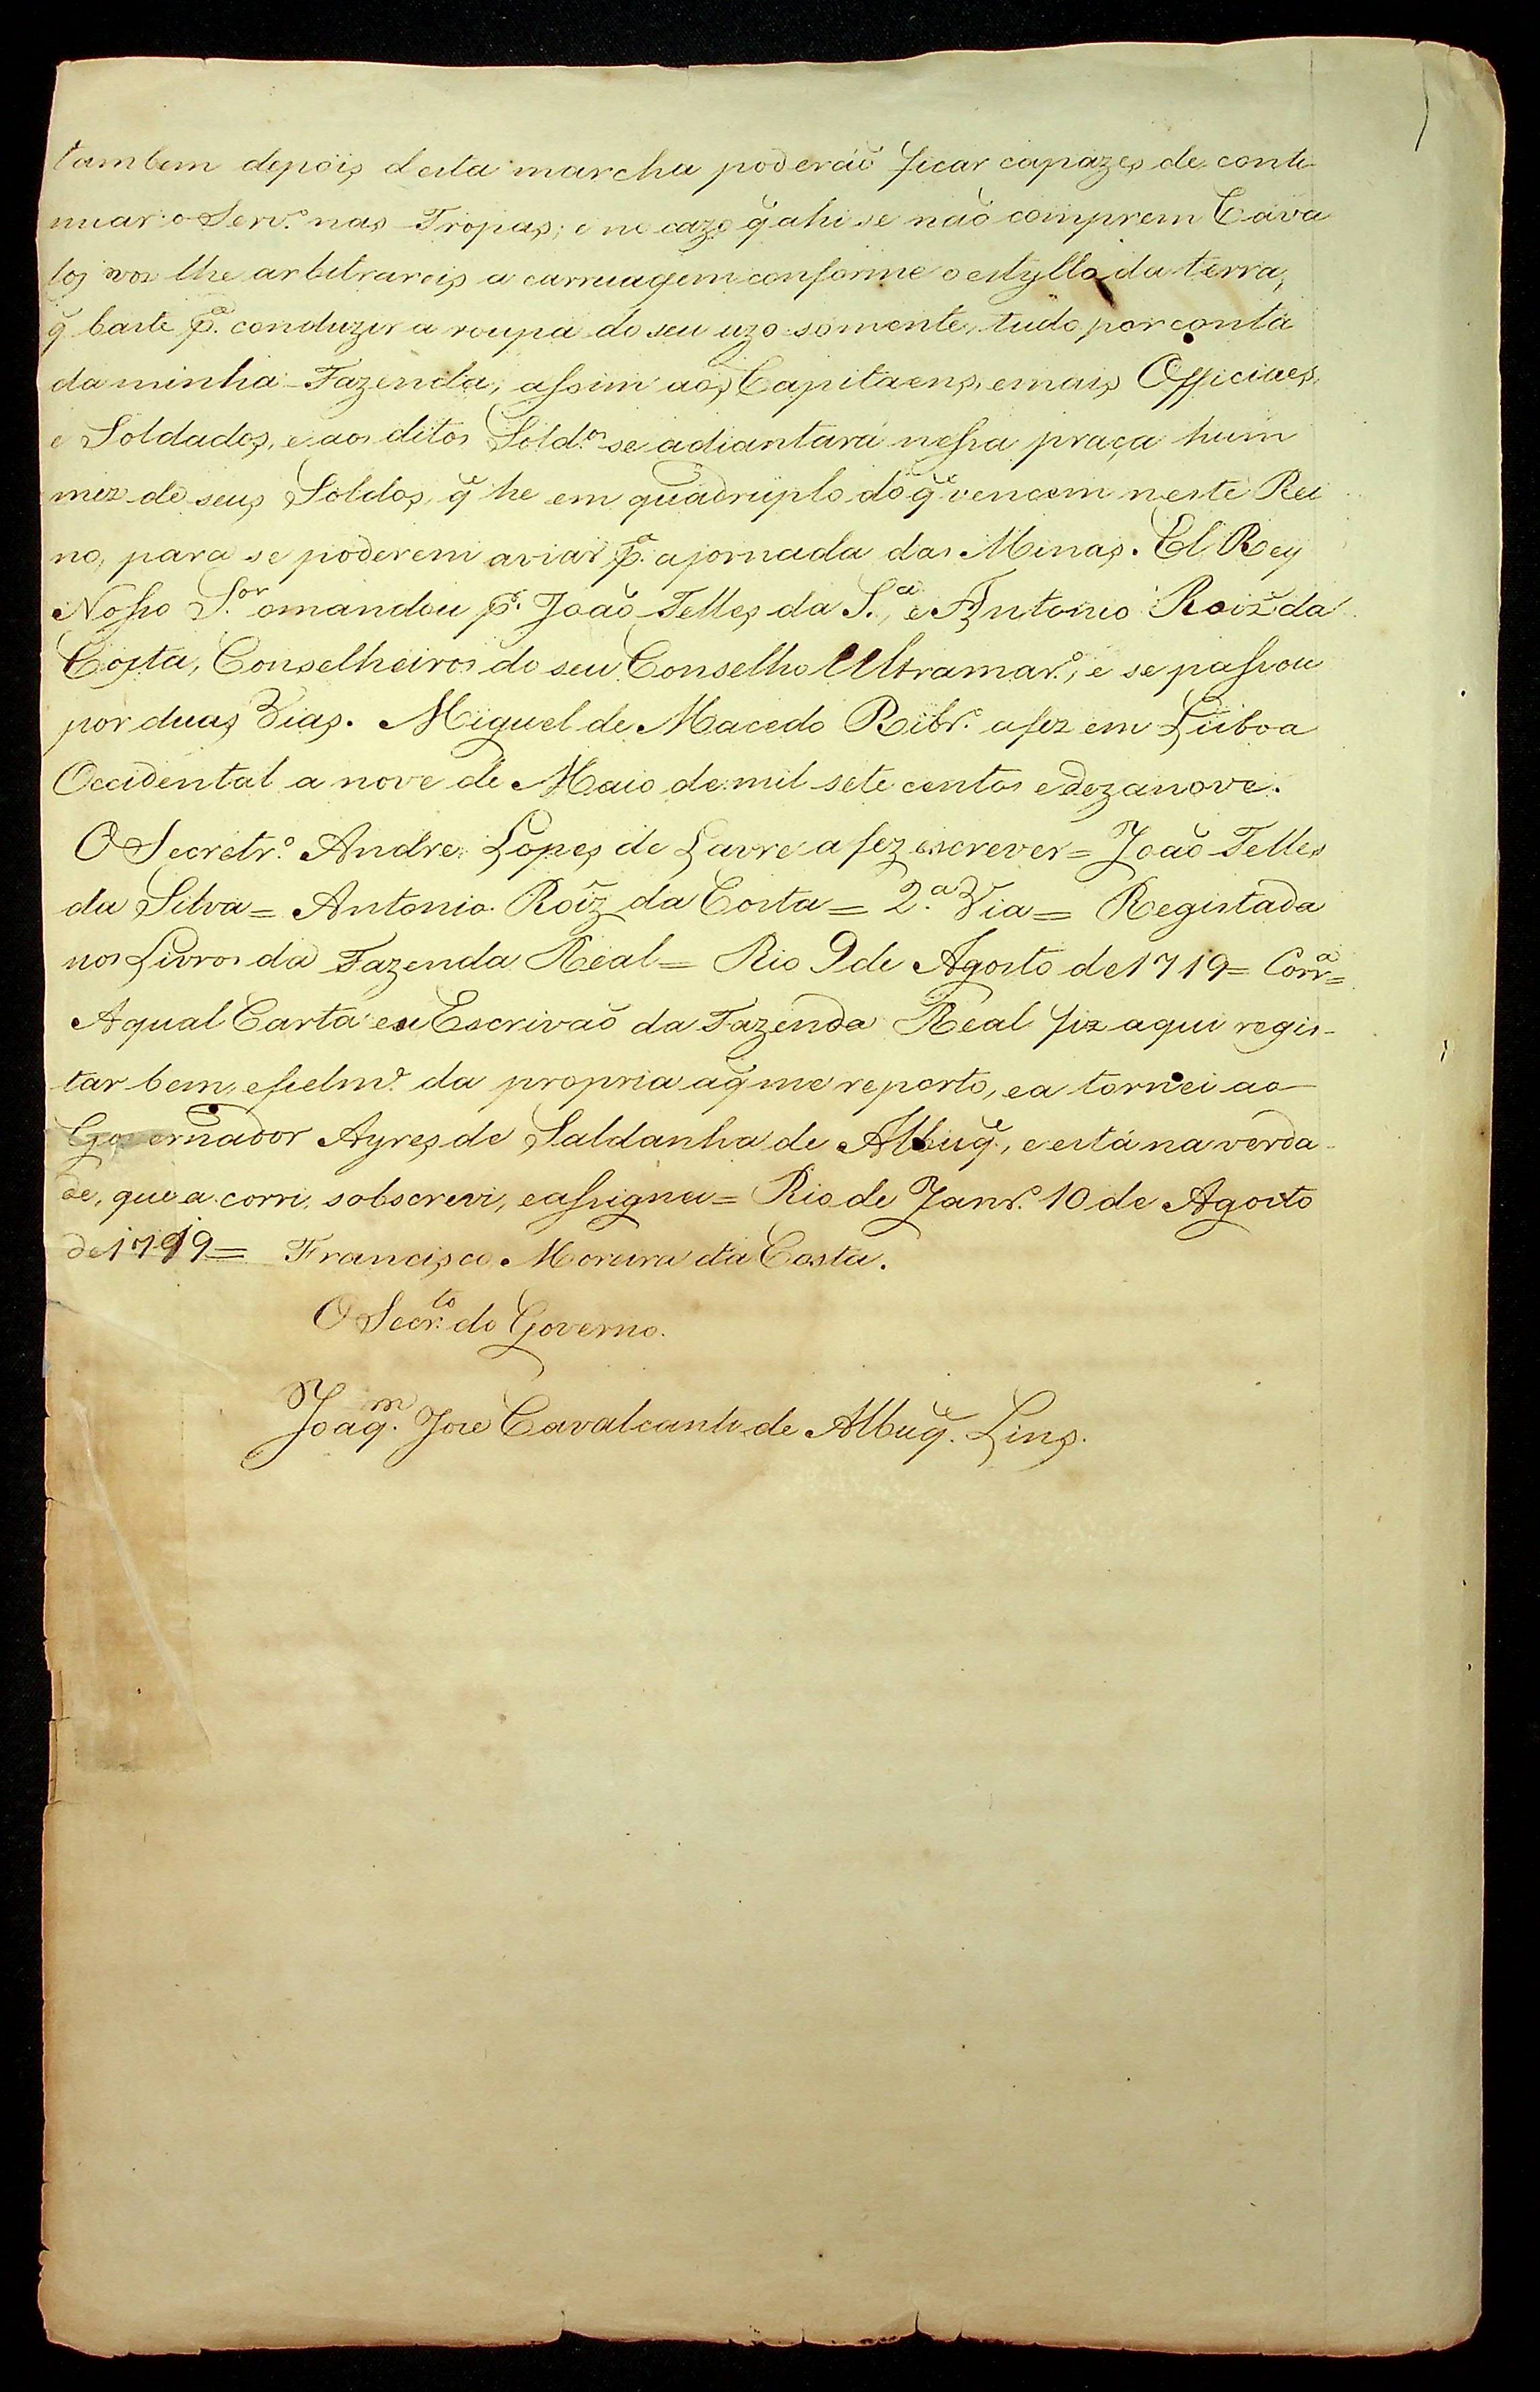 tambem depois desta marcha poderaõ ficar capazes de conti-
nuar o Serv.º nas Tropas; e no cazo q̃ ahi se naõ comprem Cava
los vos lhe arbitrareis a carruagem conforme o estyllo da terra,
q̃ baste p.ª conduzir a roupa do seu uzo somente, tudo por conta
da minha Fazenda, assim aos Capitaens, e mais Officiaes,
e Soldados, e aos ditos Sold.os se adiantará nessa praça hum
mez de seus Soldos, q̃ he em quadruplo do q̃ vencem neste Rei
no, para se poderem aviar p.ª a jornada das Minas. El Rey
Nosso S.or o mandou p.r Joaõ Telles da S.ª, e Antonio Roiz da
Costa, Conselheiros do seu Conselho Ultramar.º, e se passou
por duas Vias. Miguel de Macedo Ribr.º a fez em Lisboa
Occidental a nove de Maio de mil sete centos e dezanove.
O Secretr.º Andre Lopes de Lavre a fez escrever = Joaõ Telles
da Silva = Antonio Roiz da Costa = 2.ª Via = Registada
nos Livros da Fazenda Real = Rio 9 de Agosto de 1719 = Corr.ª =
A qual Carta eu Escrivaõ da Fazenda Real fiz aqui regis-
tar bem, e fielm.e da propria a q̃ me reporto, e a tornei ao
Governador Ayres de Saldanha de Albuq.e, e está na verda-
de, que a corri, sobscrevi, e assignei = Rio de Janr.º 10 de Agosto
de 1719 = Francisco Moreira da Costa.
O Secr.to do Governo.
Joaq.m Joze Cavalcanti de Albuq.e Lins.